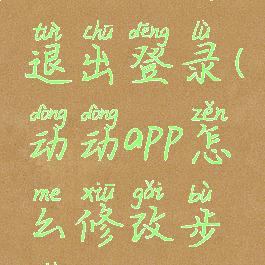 tuì chū dēng lù
退出登录(
dòng dòng zěn
动动app怎
me xiū gǎi bù
么修改步